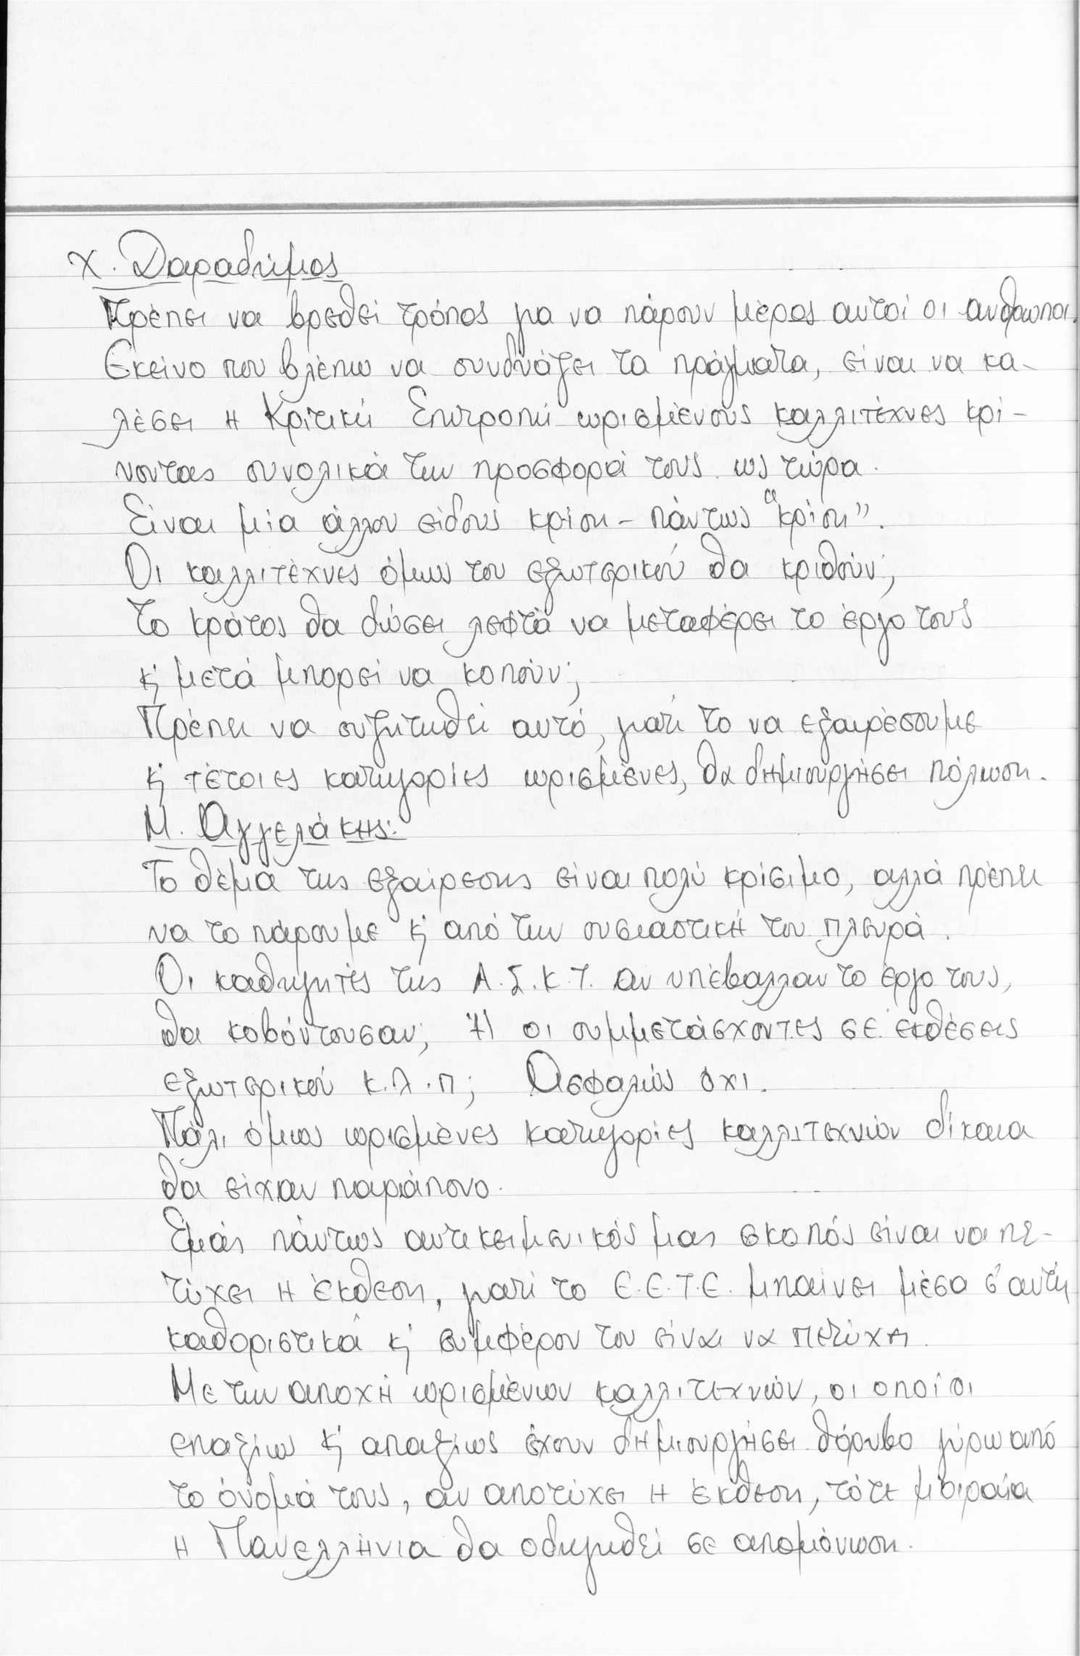 Χ. Δαραδήμος
Πρέπει να βρεθεί τρόπος για να πάρουν μέρος αυτοί οι άνθρωποι.
Εκείνο που βλέπω να συνδυάζει τα πράγματα, είναι να κα-
λέσει η Κριτική Επιτροπή ωρισμένους καλλιτέχνες κρί-
νοντας συνολικά την προσφορά τους ως τώρα.
Είναι μία άλλου είδους κρίση - πάντως "κρίση".
Οι καλλιτέχνες όμως του εξωτερικού θα κριθούν;
Το κράτος θα δώσει λεφτά να μεταφέρει το έργο τους
κ' μετά μπορεί να κοπούν;
Πρέπει να συζητηθεί αυτό, γιατί το να εξαιρέσουμε
κ' τέτοιες κατηγορίες ωρισμένες, θα δημιουργήσει πόλωση.
Μ. Αγγελάκης:
Το θέμα της εξαίρεσης είναι πολύ κρίσιμο, αλλά πρέπει
να το πάρουμε κ' από την ουσιαστική του πλευρά.
Οι καθηγητές της Α.Σ.Κ.Τ. αν υπέβαλλαν το έργο τους,
θα κοβόντουσαν; Ή οι συμμετάσχοντες σε εκθέσεις
εξωτερικού κ.λ.π; Ασφαλώς όχι.
Πάλι όμως ωρισμένες κατηγορίες καλλιτεχνών δίκαια
θα είχαν παράπονο.
Εμάς πάντως αντικειμενικός μας σκοπός είναι να πε-
τύχει η έκθεση, γιατί το Ε.Ε.Τ.Ε. μπαίνει μέσα σ' αυτή
καθοριστικά κ' συμφέρον του είναι να πετύχη.
Με την αποχή ωρισμένων καλλιτεχνών, οι οποίοι
επαξίως κ' απαξίως έχουν δημιουργήσει θόρυβο γύρω από
το όνομά τους, αν αποτύχει η έκθεση, τότε μοιραία
η Πανελλήνια θα οδηγηθεί σε απομόνωση.